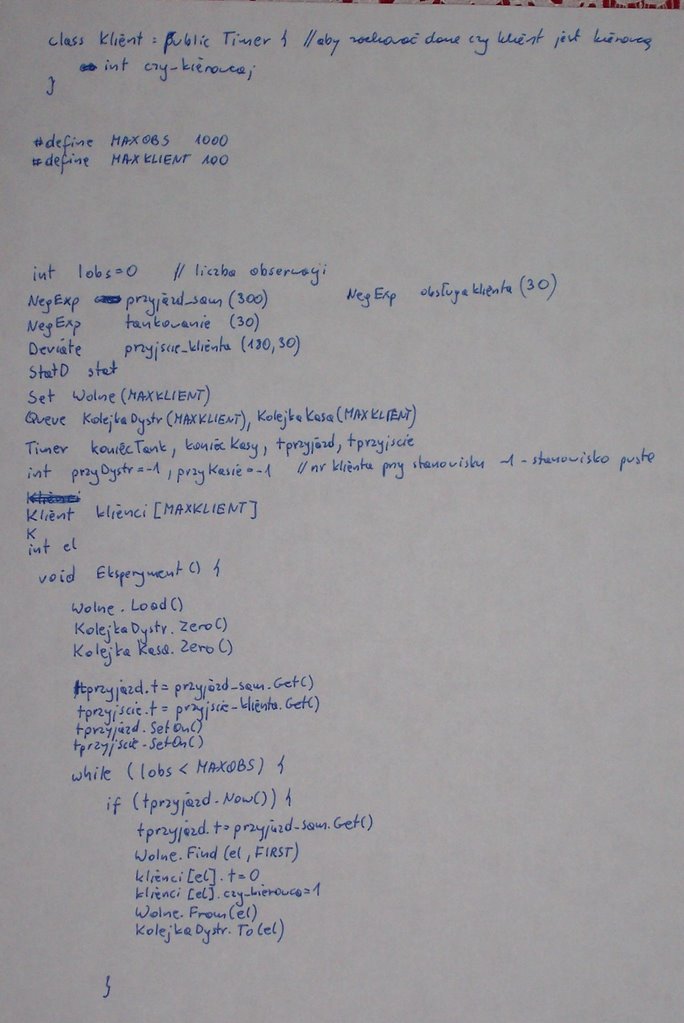 class Klient : public Timer { // aby zachować dane czy klient jest kierowcą
int czy_kierowca;
}
#define MAXOBS 1000
#define MAXKLIENT 100
int lobs=0 // liczba obserwacji
NegExp przyjazd_sam (300) NegExp obsługa klienta (30)
NegExp tankowanie (30)
Deviate przyjscie_klienta (180,30)
StatD stat
Set Wolne (MAXKLIENT)
Queue KolejkaDystr (MAXKLIENT), KolejkaKasa (MAXKLIENT)
Timer koniecTank, koniecKasy, tprzyjazd, tprzyjscie
int przyDystr=-1, przyKasie=-1 // nr klienta przy stanowisku -1 - stanowisko puste
Klient klienci [MAXKLIENT]
K
int el
void Eksperyment () {
Wolne.Load()
KolejkaDystr.Zero()
KolejkaKasa.Zero()
tprzyjazd.t = przyjazd_sam.Get()
tprzyjscie.t = przyjscie_klienta.Get()
tprzyjazd.SetOn()
tprzyjscie.SetOn()
while (lobs < MAXOBS) {
if (tprzyjazd.Now()) {
tprzyjazd.t=przyjazd_sam.Get()
Wolne.Find (el, FIRST)
klienci [el].t=0
klienci [el].czy_kierowca=1
Wolne.From(el)
KolejkaDystr.To(el)
}